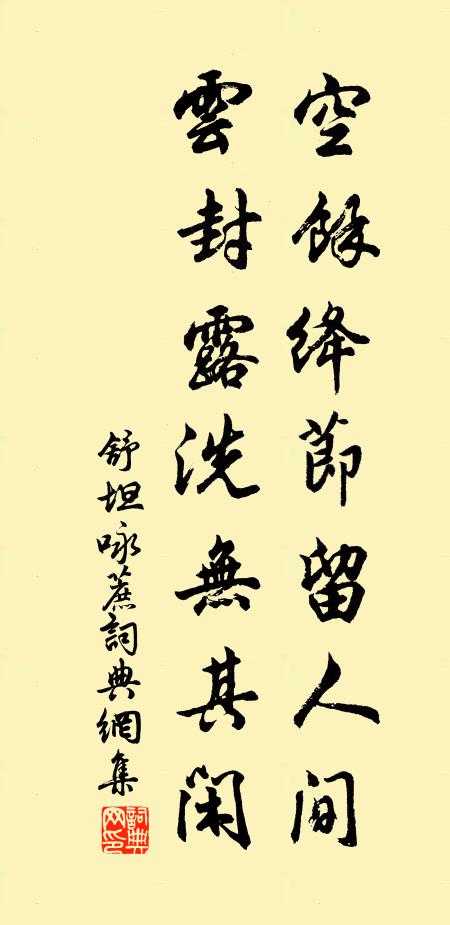 空餘絳節留人間
雲封露洗無其閑
舒坦咏蔗詞典網集
詞典網印